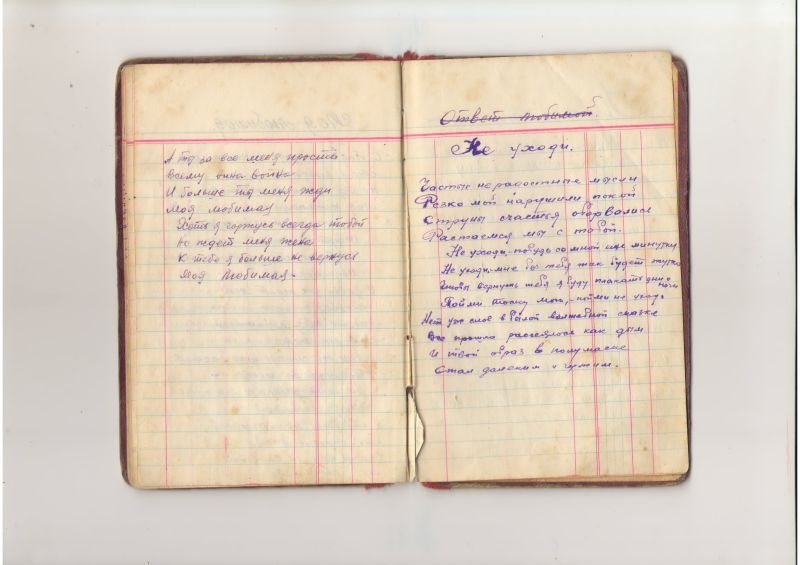 А ты за все меня прости
всему вина война
И больше ты меня не жди
Моя любимая
Хоть я горжусь всегда тобой
но ждет меня жена
К тебе я больше не вернусь
Моя Любимая.
Ответ любимой.
Не уходи.
Частые нерадостные мысли
Резко мой нарушили покой
Струны счастья оборвались
Растаемся мы с тобой.
Не уходи, побудь со мной еще минутку
Не уходи, мне без тебя так будет жутко
Чтобы вернуть тебя я буду плакать дни и
ночи
Пойми тоску мою, пойми не уходи
Нет уж слов в былой волшебной сказке
Все прошло рассеялось как дым
И твой образ в полумаске
Стал далеким и чужим.